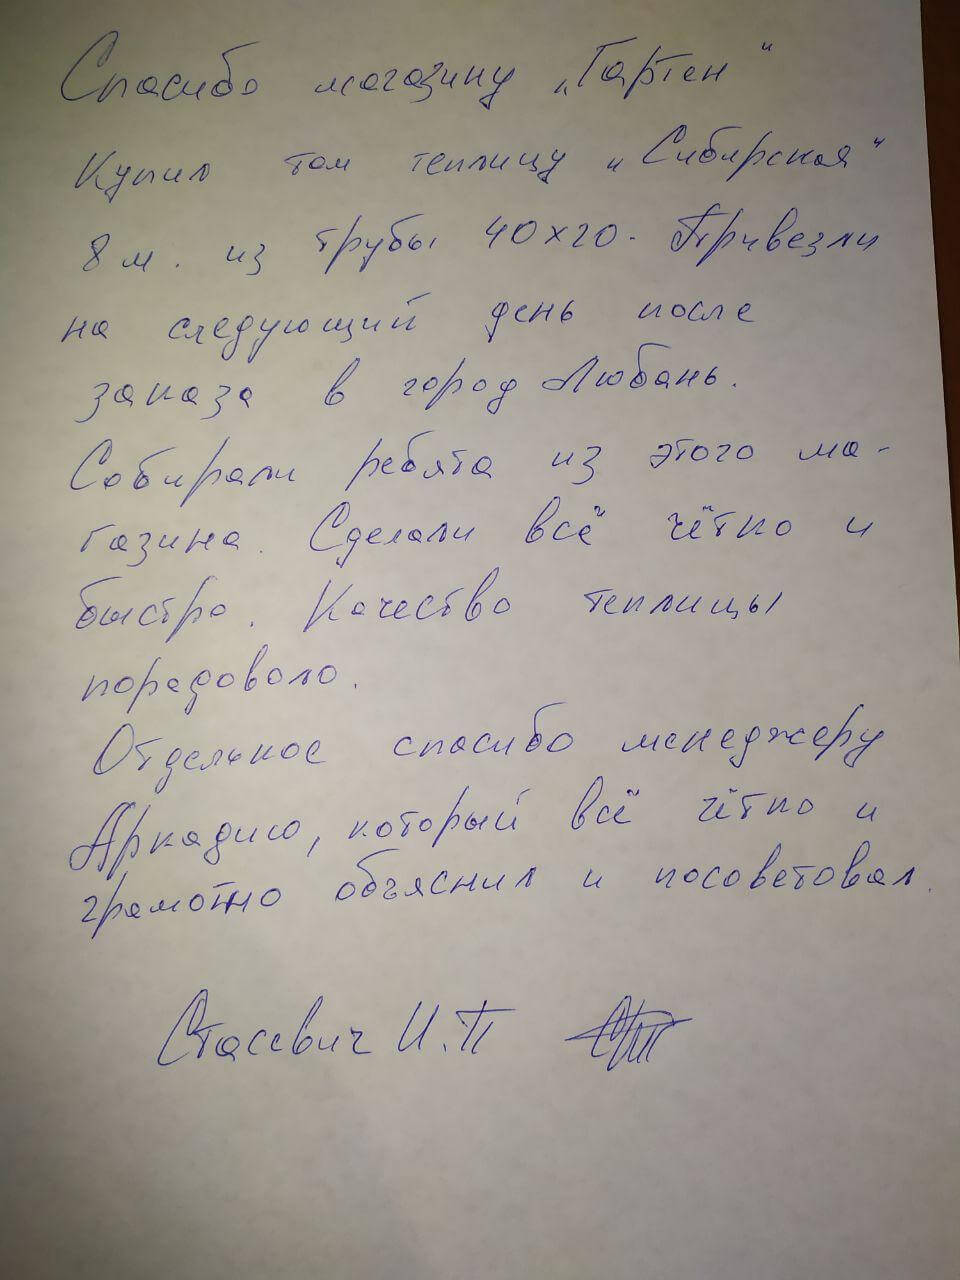 Спасибо магазину „Гартен"
Купил там теплицу „Сибирская"
8 м. из трубы 40х20. Привезли
на следующий день после
заказа в город Любань.
Собирали ребята из этого ма-
газина. Сделали всё чётко и
быстро. Качество теплицы
порадовало.
Отдельное спасибо менеджеру
Аркадию, который всё чётко и
грамотно объяснил и посоветовал.
Стасевич И.П